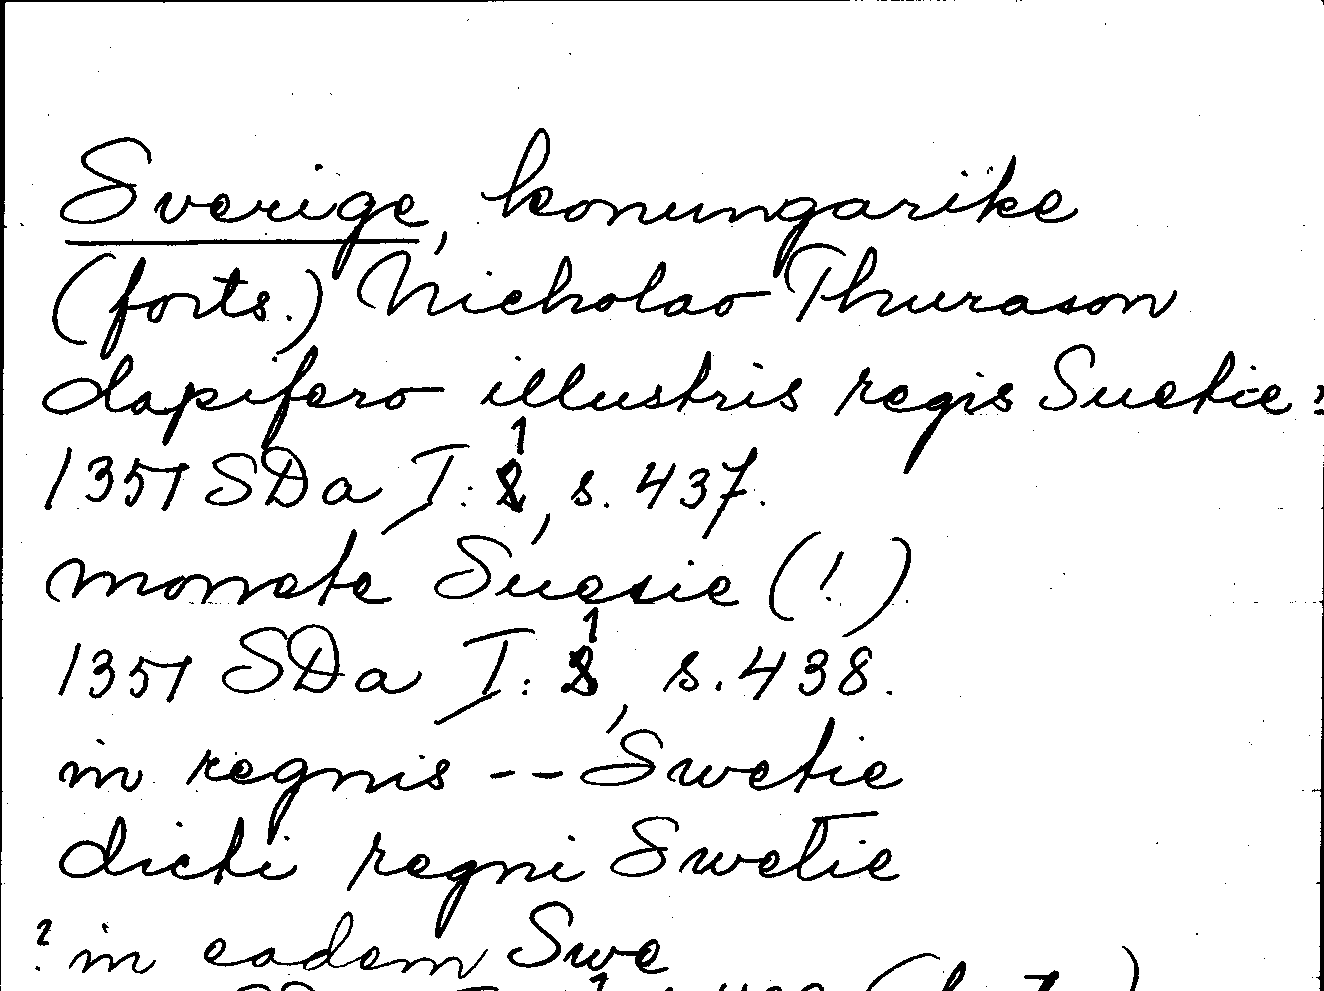 Sverige, konungarike
(forts.) Nicholao Thurason
dapifero illustris regis Suetie
1351 SDa I:1, s. 437.
monete Suesie (!)
1351 SDa I:1, s. 438.
in regnis -- Swetie
dicti regni Swetie
? in eadem Swe